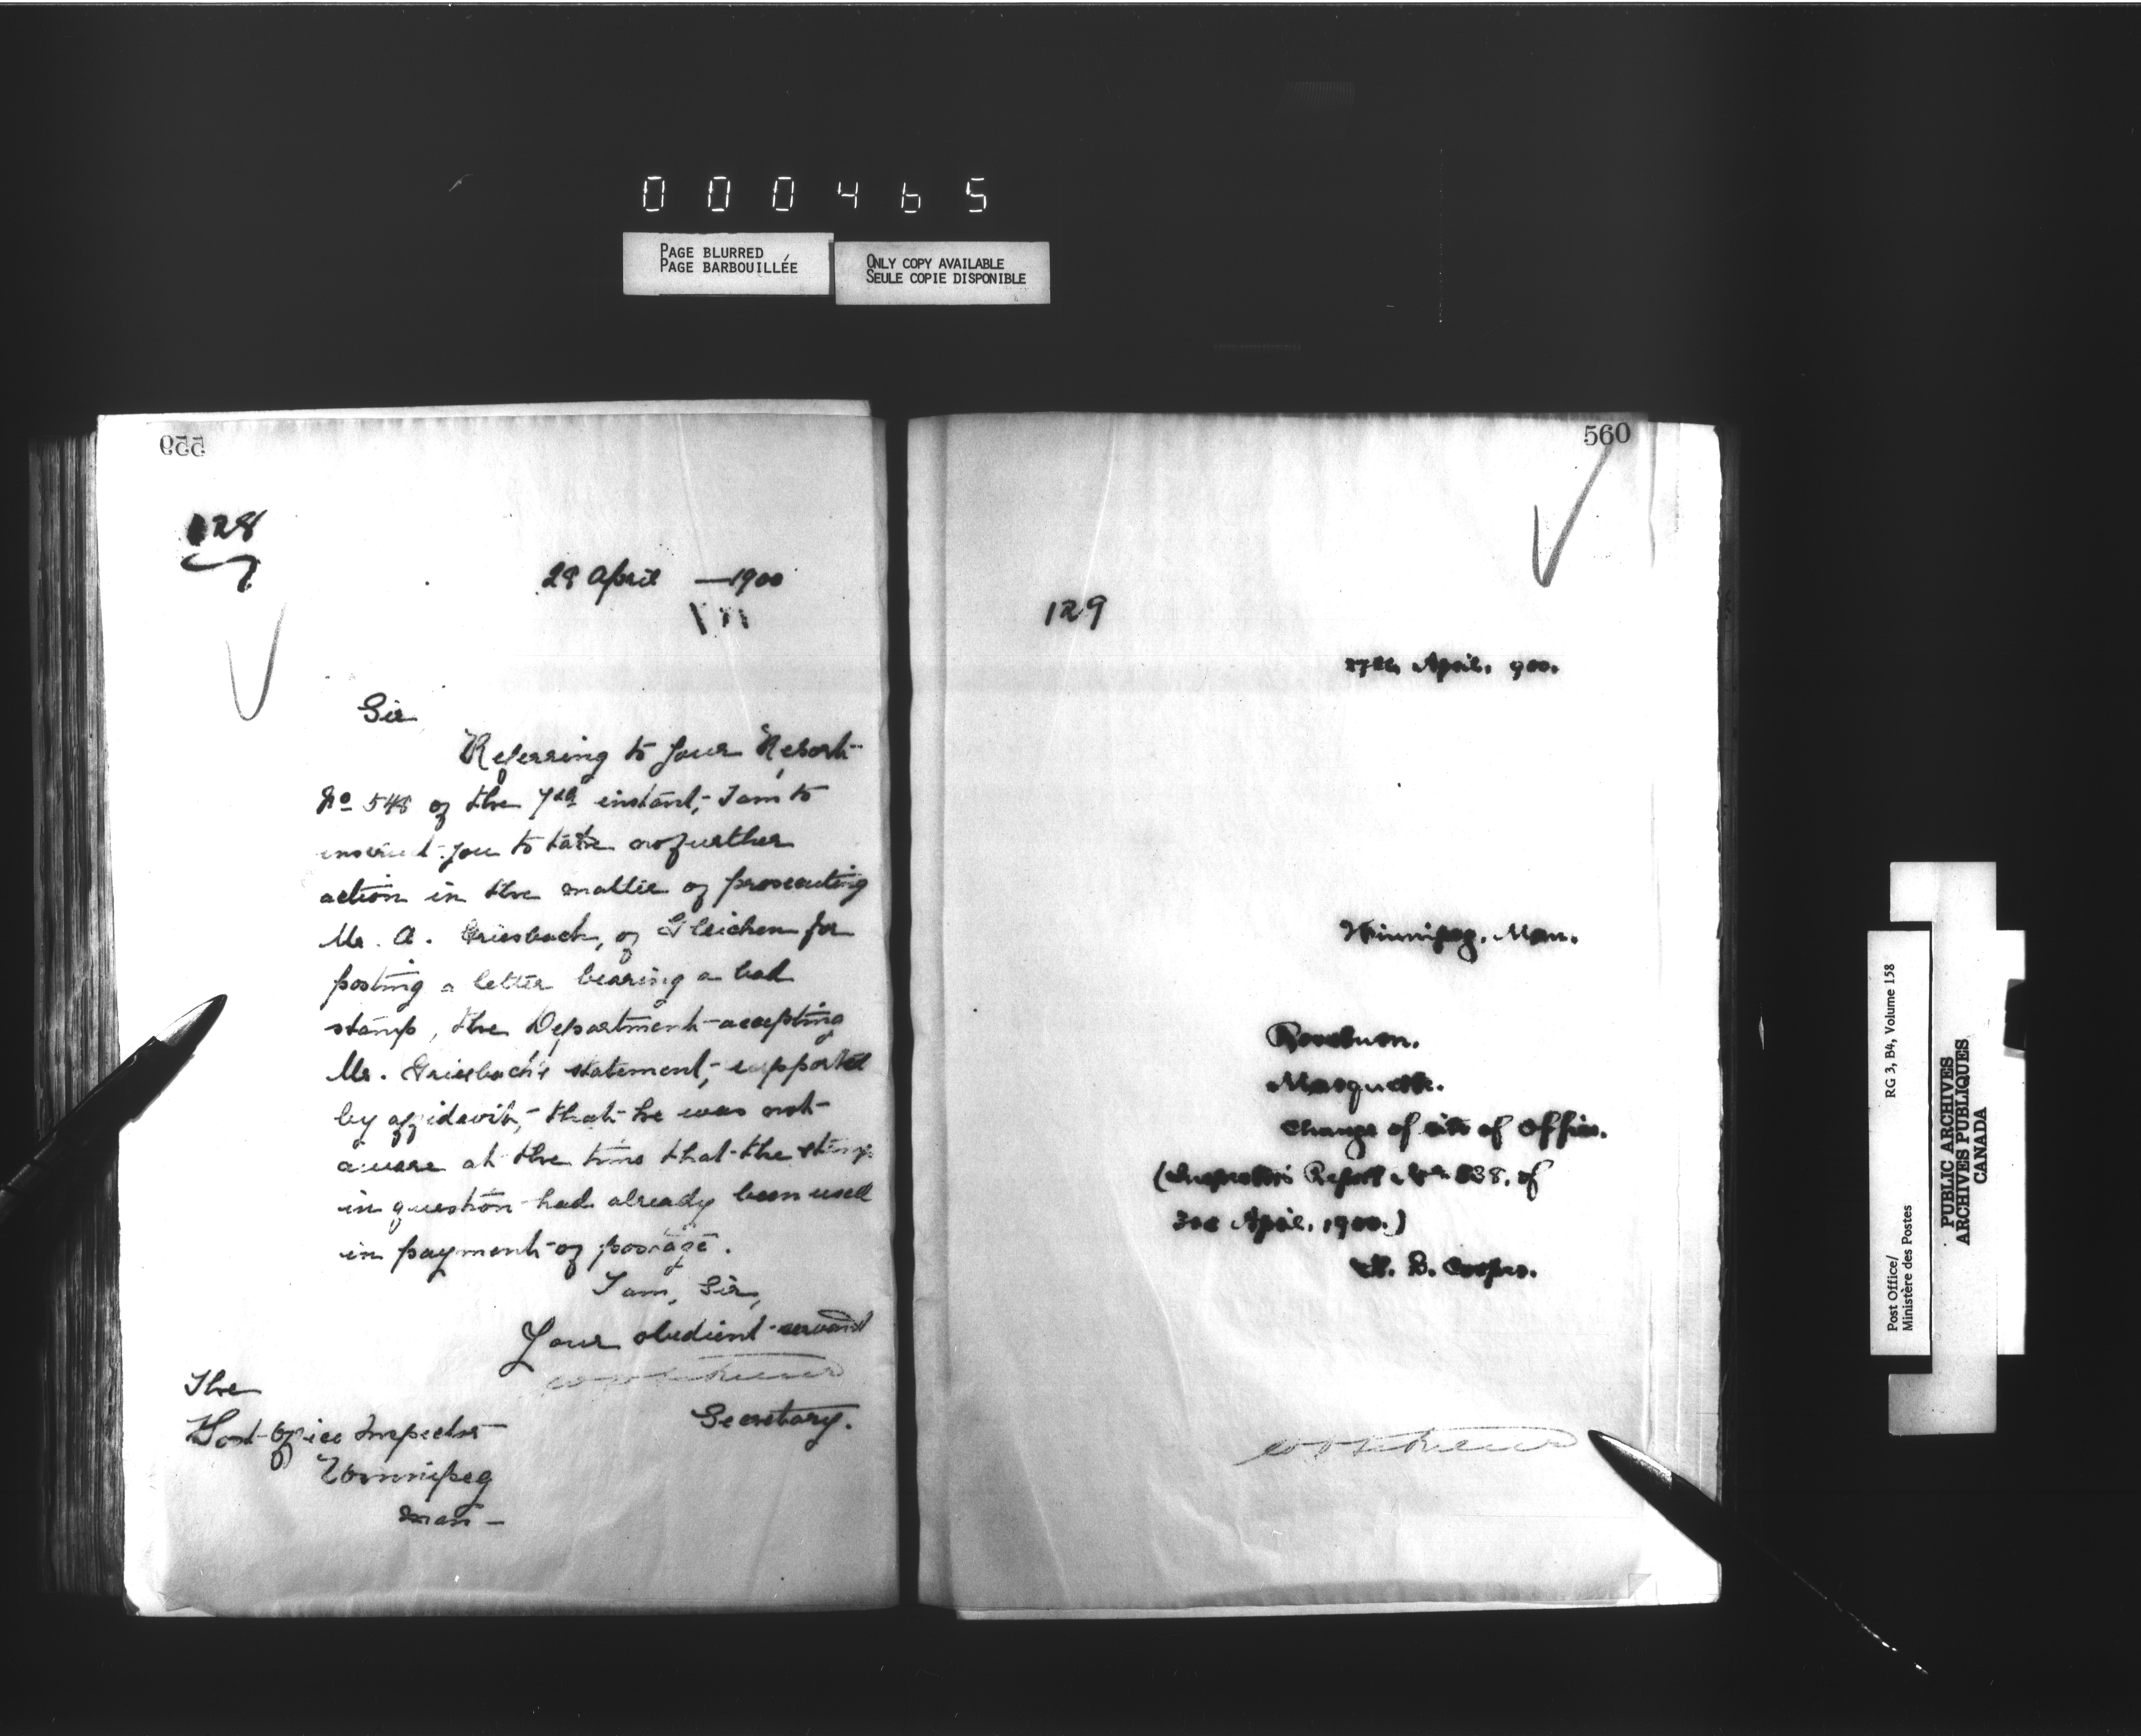 000465
PAGE BLURRED
PAGE BARBOUILLÉE
ONLY COPY AVAILABLE
SEULE COPIE DISPONIBLE
559
128
28 April — 1900
Sir
Referring to your Report
No 548 of the 7th instant, I am to
instruct you to take no further
action in the matter of prosecuting
Mr. A. Griesbach, of Gleichen for
posting a letter bearing a bad
stamp, the Department accepting
Mr. Griesbach's statement, supported
by affidavit, that he was not
aware at the time that the stamp
in question had already been used
in payment of postage.
I am, Sir,
Your obedient servant
Secretary.
The
Post Office Inspector
Winnipeg
Man —
560
129
27th April, 900.
Winnipeg, Man.
Marquette.
Change of site of Office.
(Inspector's Report No 538, of
3rd April, 1900.)
B. Cooper.
Post Office/
Ministère des Postes
RG 3, B4, Volume 158
PUBLIC ARCHIVES
ARCHIVES PUBLIQUES
CANADA